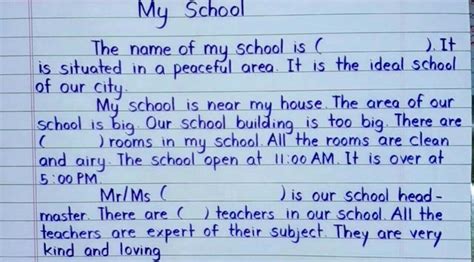 My School
The name of my school is (          ). It
is situated in a peaceful area. It is the ideal school
of our city.
My school is near my house. The area of our
school is big. Our school building is too big. There are
(      ) rooms in my school. All the rooms are clean
and airy. The school open at 11:00 AM. It is over at
5:00 PM.
Mr/Ms (          ) is our school head-
master. There are (   ) teachers in our school. All the
teachers are expert of their subject. They are very
kind and loving